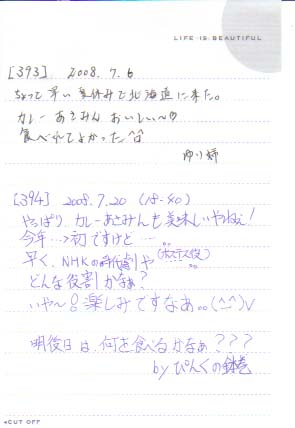 LIFE IS BEAUTIFUL
[393] 2008.7.6
ちょっと早い夏休みで北海道に来た。
カレーあさみん おいしい〜♡
食べれてよかった^^
ゆり姉
[394] 2008.7.20 (18:40)
やっぱり カレーあさみんも美味しいやねぇ!
今年…→初ですけど…
早く、NHKの時代劇や(ホステス役)……
どんな役割かなぁ?
いや〜!楽しみですなあ。。(^-^)V
明後日は、何を食べるかなぁ???
by ぴんくの鉢巻
◀CUT OFF